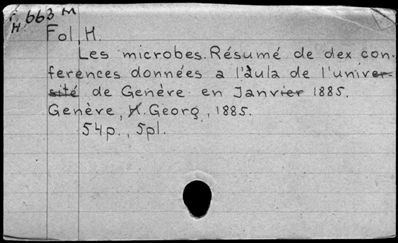 663 M
H.
Fol, H.
Les microbes. Résumé de dex con-
ferences données a l'aula de l'univer-
sité de Genéve en Janvier 1885.
Genéve, H. Georg, 1885.
54p., 5pl.